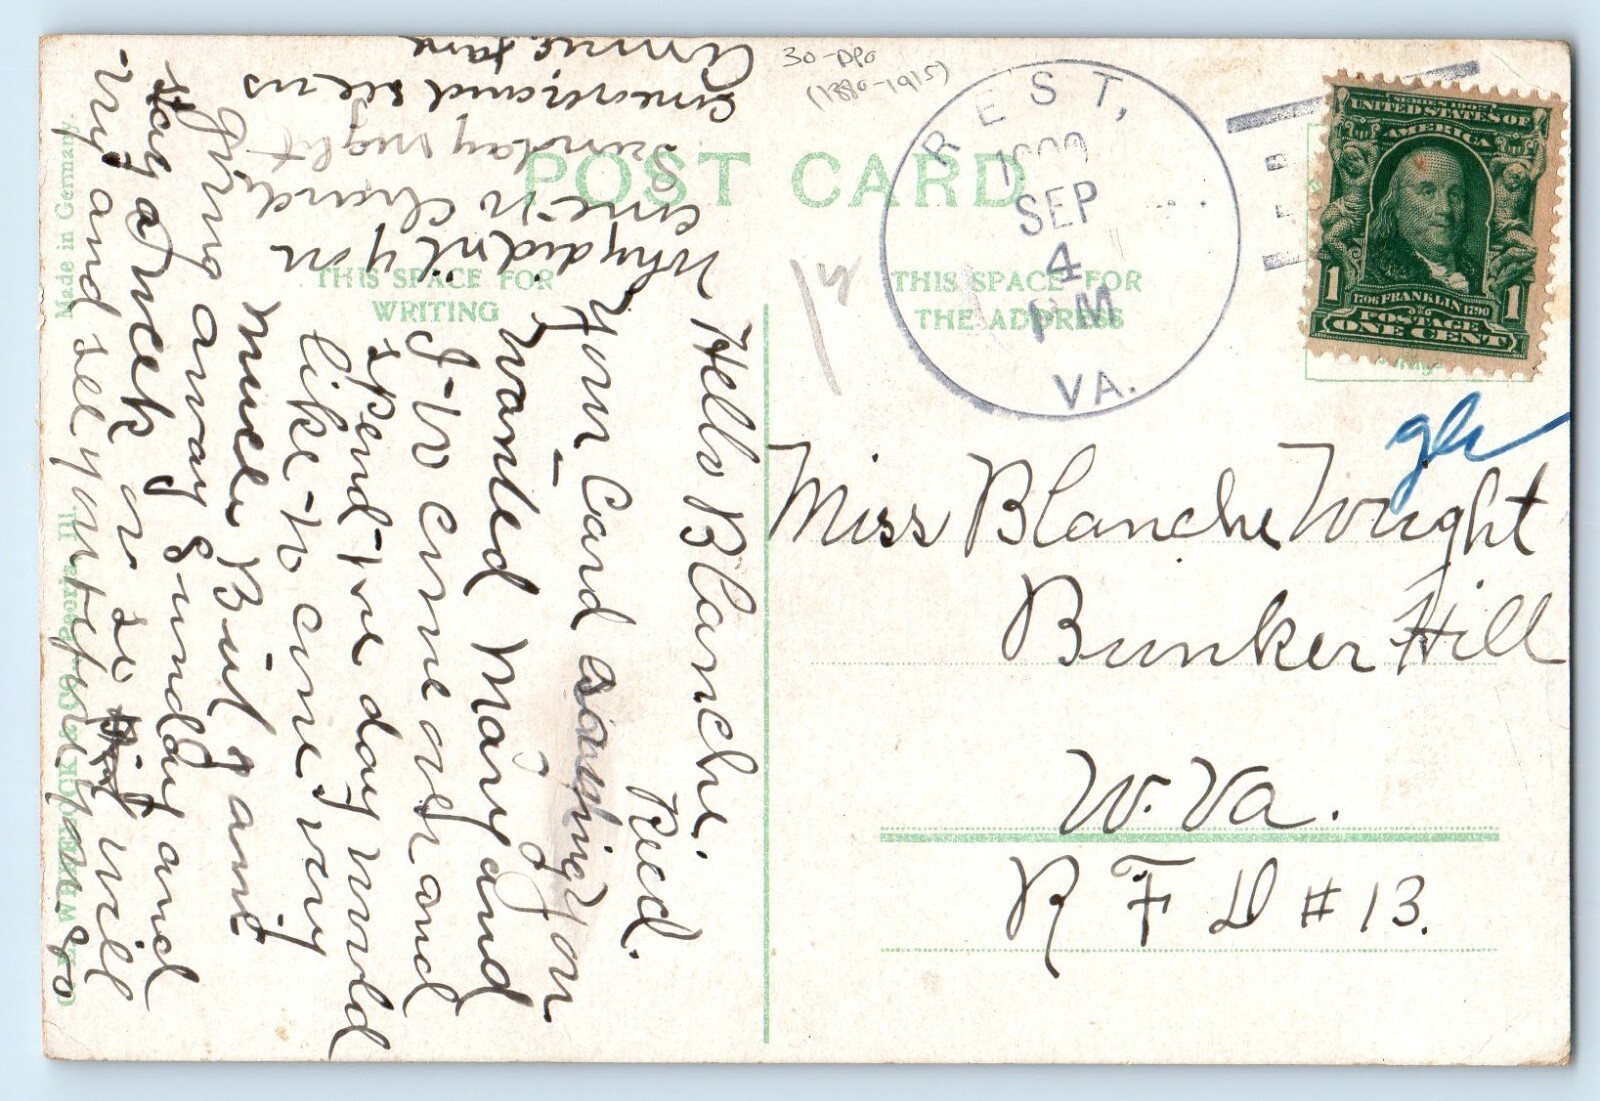 30-DPO
(1880-1915)
POST CARD
THIS SPACE FOR
WRITING
THIS SPACE FOR
THE ADDRESS
REST,
1909
SEP
4
PM
VA.
SERIES 1902
UNITED STATES OF
AMERICA
1706 FRANKLIN 1790
POSTAGE
1 ONE CENT 1
Made in Germany.
Peoria, Ill.
Miss Blanche Wright
Bunker Hill
W. Va.
R F D #13.
Hello Blanche.
Reed.
your Card asking you
wanted Mary and
I-to come over and
spend-the day would
like-to come very
much But I am
going away Sunday and
stay a week or so will
try and see you before you go
why didnt you
come to
Sunday night
come over and see us
Annie